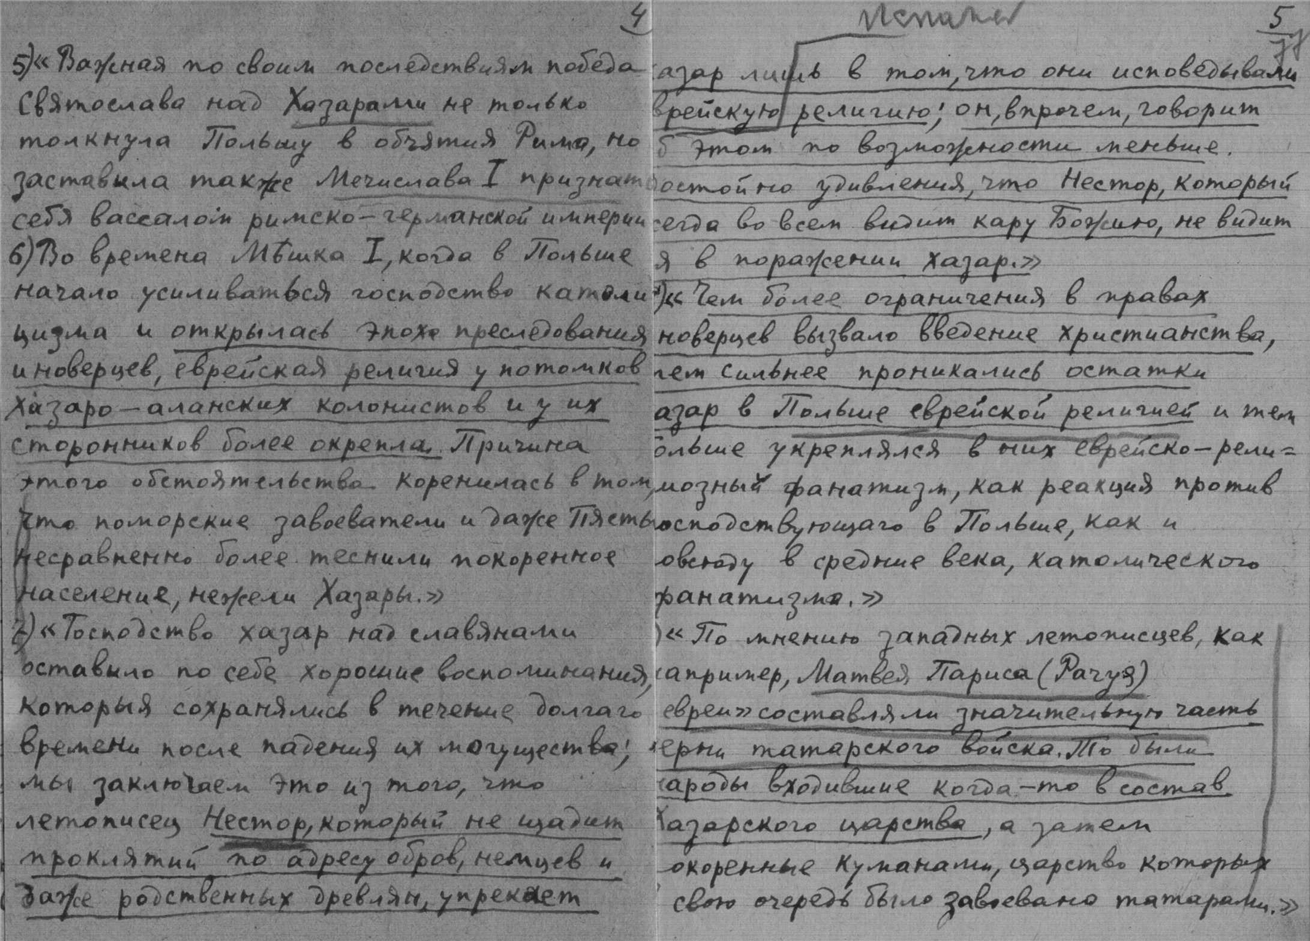 4
5) «Важная по своим последствиям победа
Святослава над Хазарами не только
толкнула Польшу в объятия Рима, но
заставила также Мечислава I признат
себя вассалом римско-германской империи
6) Во времена Мѣшка I, когда в Польше
начало усиливаться господство катли
цизма и открылась эпоха преследования
иноверцев, еврейская религия у потомков
Хазаро-аланских колонистов и у их
сторонников более окрепла. Причина
этого обстоятельства коренилась в том,
что поморские завоеватели и даже Пясты
несравненно более теснили покоренное
население, нежели Хазары.»
7) «Господство хазар над славянами
оставило по себе хорошие воспоминания,
которыя сохранялись в течение долгаго
времени после падения их могущества;
мы заключаем это из того, что
летописец Нестор, который не щадит
проклятий по адресу обров, немцев и
даже родственных древлян, упрекает
5
77
азар лишь в том, что они исповедывали
врейскую религию; он, впрочем, говорит
б этом по возможности меньше.
остойно удивления, что Нестор, который
сегда во всем видит кару Божию, не видит
я в поражении хазар.»
) «Чем более ограничения в правах
новерцев вызвало введение христианства,
тем сильнее проникались остатки
азар в Польше еврейской религией и тем
ольше укреплялся в них еврейско-рели=
иозный фанатизм, как реакция против
осподствующаго в Польше, как и
овсюду в средние века, католического
фанатизма.»
) «По мнению западных летописцев, как
например, Матвея Париса (Рачуя)
евреи» составляли значительную часть
черни татарского войска. То были
народы входившие когда-то в состав
Хазарского царства, а затем
окоренные Куманами, царство которых
свою очередь было завоевано татарами.»